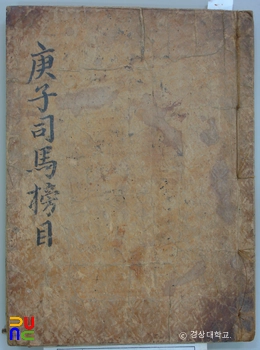 庚子司馬榜目
© 경상대학교.